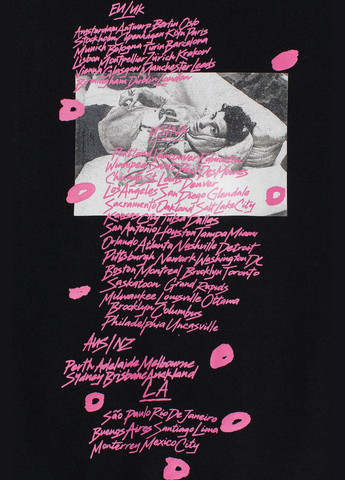 EU/UK
Amsterdam Antwerp Berlin Oslo
Stockholm Copenhagen Köln Paris
Munich Bologna Turin Barcelona
Lisbon Montpellier Zürich Krakow
Vienna Glasgow Manchester Leeds
Birmingham Dublin London
Portland Vancouver
Winnipeg Des Moines
Chicago St Louis Denver
Los Angeles San Diego Glendale
Sacramento Oakland Salt Lake City
Kansas City Tulsa Dallas
San Antonio Houston Tampa Miami
Orlando Atlanta Nashville Detroit
Pittsburgh Newark Washington DC
Boston Montreal Brooklyn Toronto
Saskatoon Grand Rapids
Milwaukee Louysville Ottawa
Brooklyn Columbus
Philadelphia Uncasville
AUS/NZ
Perth Adelaide Melbourne
Sydney Brisbane Auckland
LA
São Paulo Rio De Janeiro
Buenos Aires Santiago Lima
Monterrey Mexico City